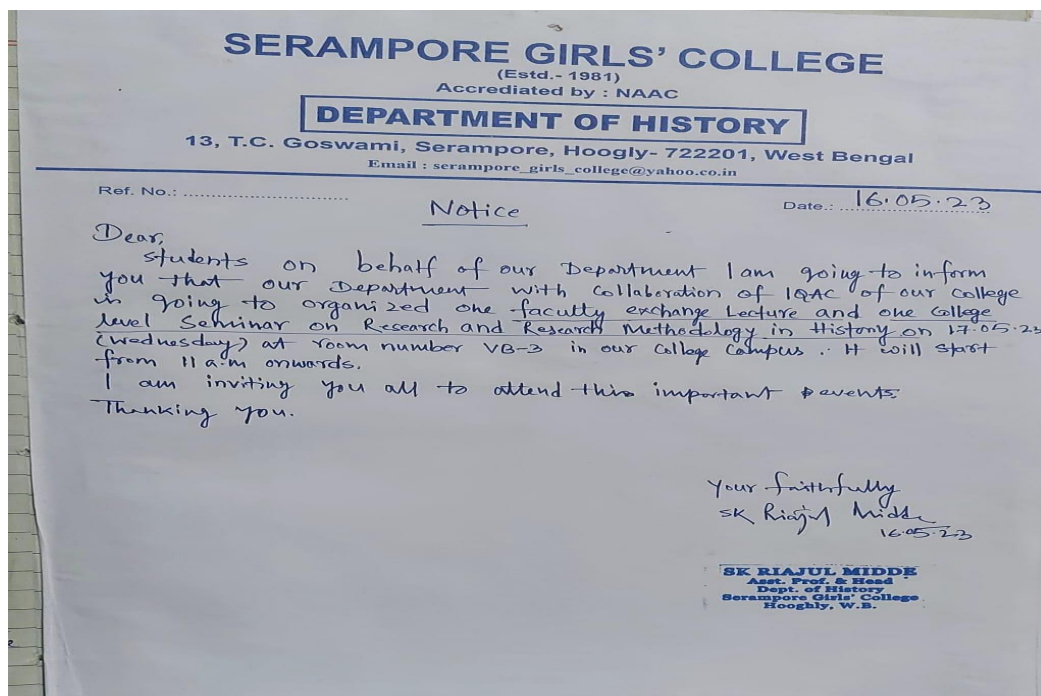 SERAMPORE GIRLS' COLLEGE
(Estd.- 1981)
Accrediated by : NAAC
DEPARTMENT OF HISTORY
13, T.C. Goswami, Serampore, Hoogly- 722201, West Bengal
Email : serampore_girls_college@yahoo.co.in
Ref. No.: ................................
Date.: 16.05.23
Notice
Dear,
students on behalf of our Department I am going to inform
you that our Department with Collaboration of IQAC of our College
is going to organized one faculty exchange Lecture and one College
level Seminar on Research and Research Methodology in History on 17.05.23
(Wednesday) at room number VB-3 in our College Campus. It will start
from 11 a.m onwards.
I am inviting you all to attend this important events.
Thanking you.
Your faithfully
SK Riajul Midde
16.05.23
SK RIAJUL MIDDE
Asst. Prof. & Head
Dept. of History
Serampore Girls' College
Hooghly, W.B.